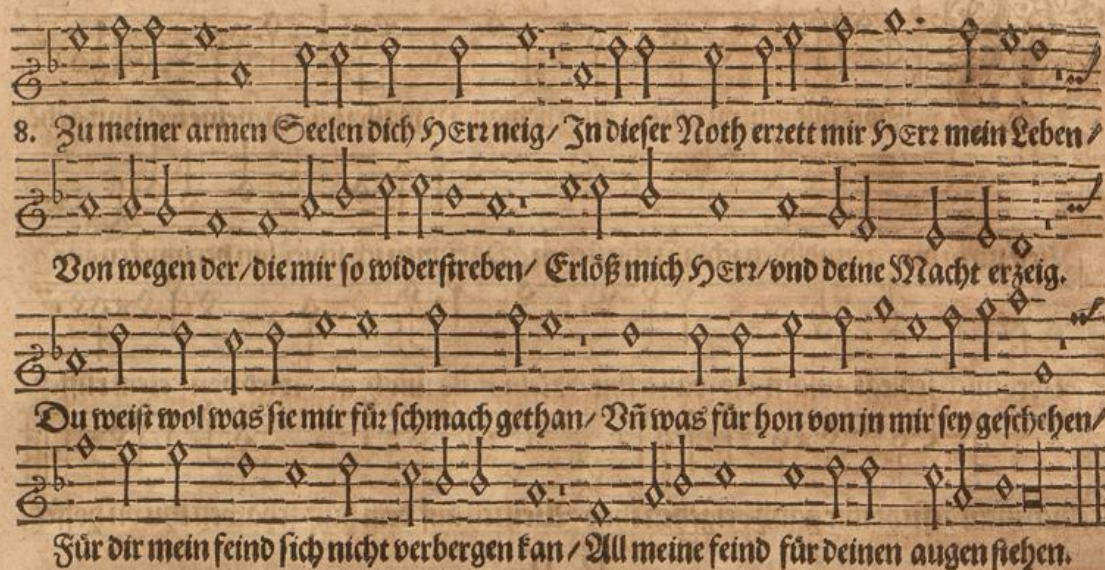 8. Zu meiner armen Seelen dich HErr neig/ In dieser Noth errett mir HErr mein Leben/
Von wegen der/die mir so widerstreben/ Erlöß mich HErr/vnd deine Macht erzeig.
Du weist wol was sie mir für schmach gethan/ Vñ was für hon von jn mir sey geschehen/
Für dir mein feind sich nicht verbergen kan/ All meine feind für deinen augen stehen.